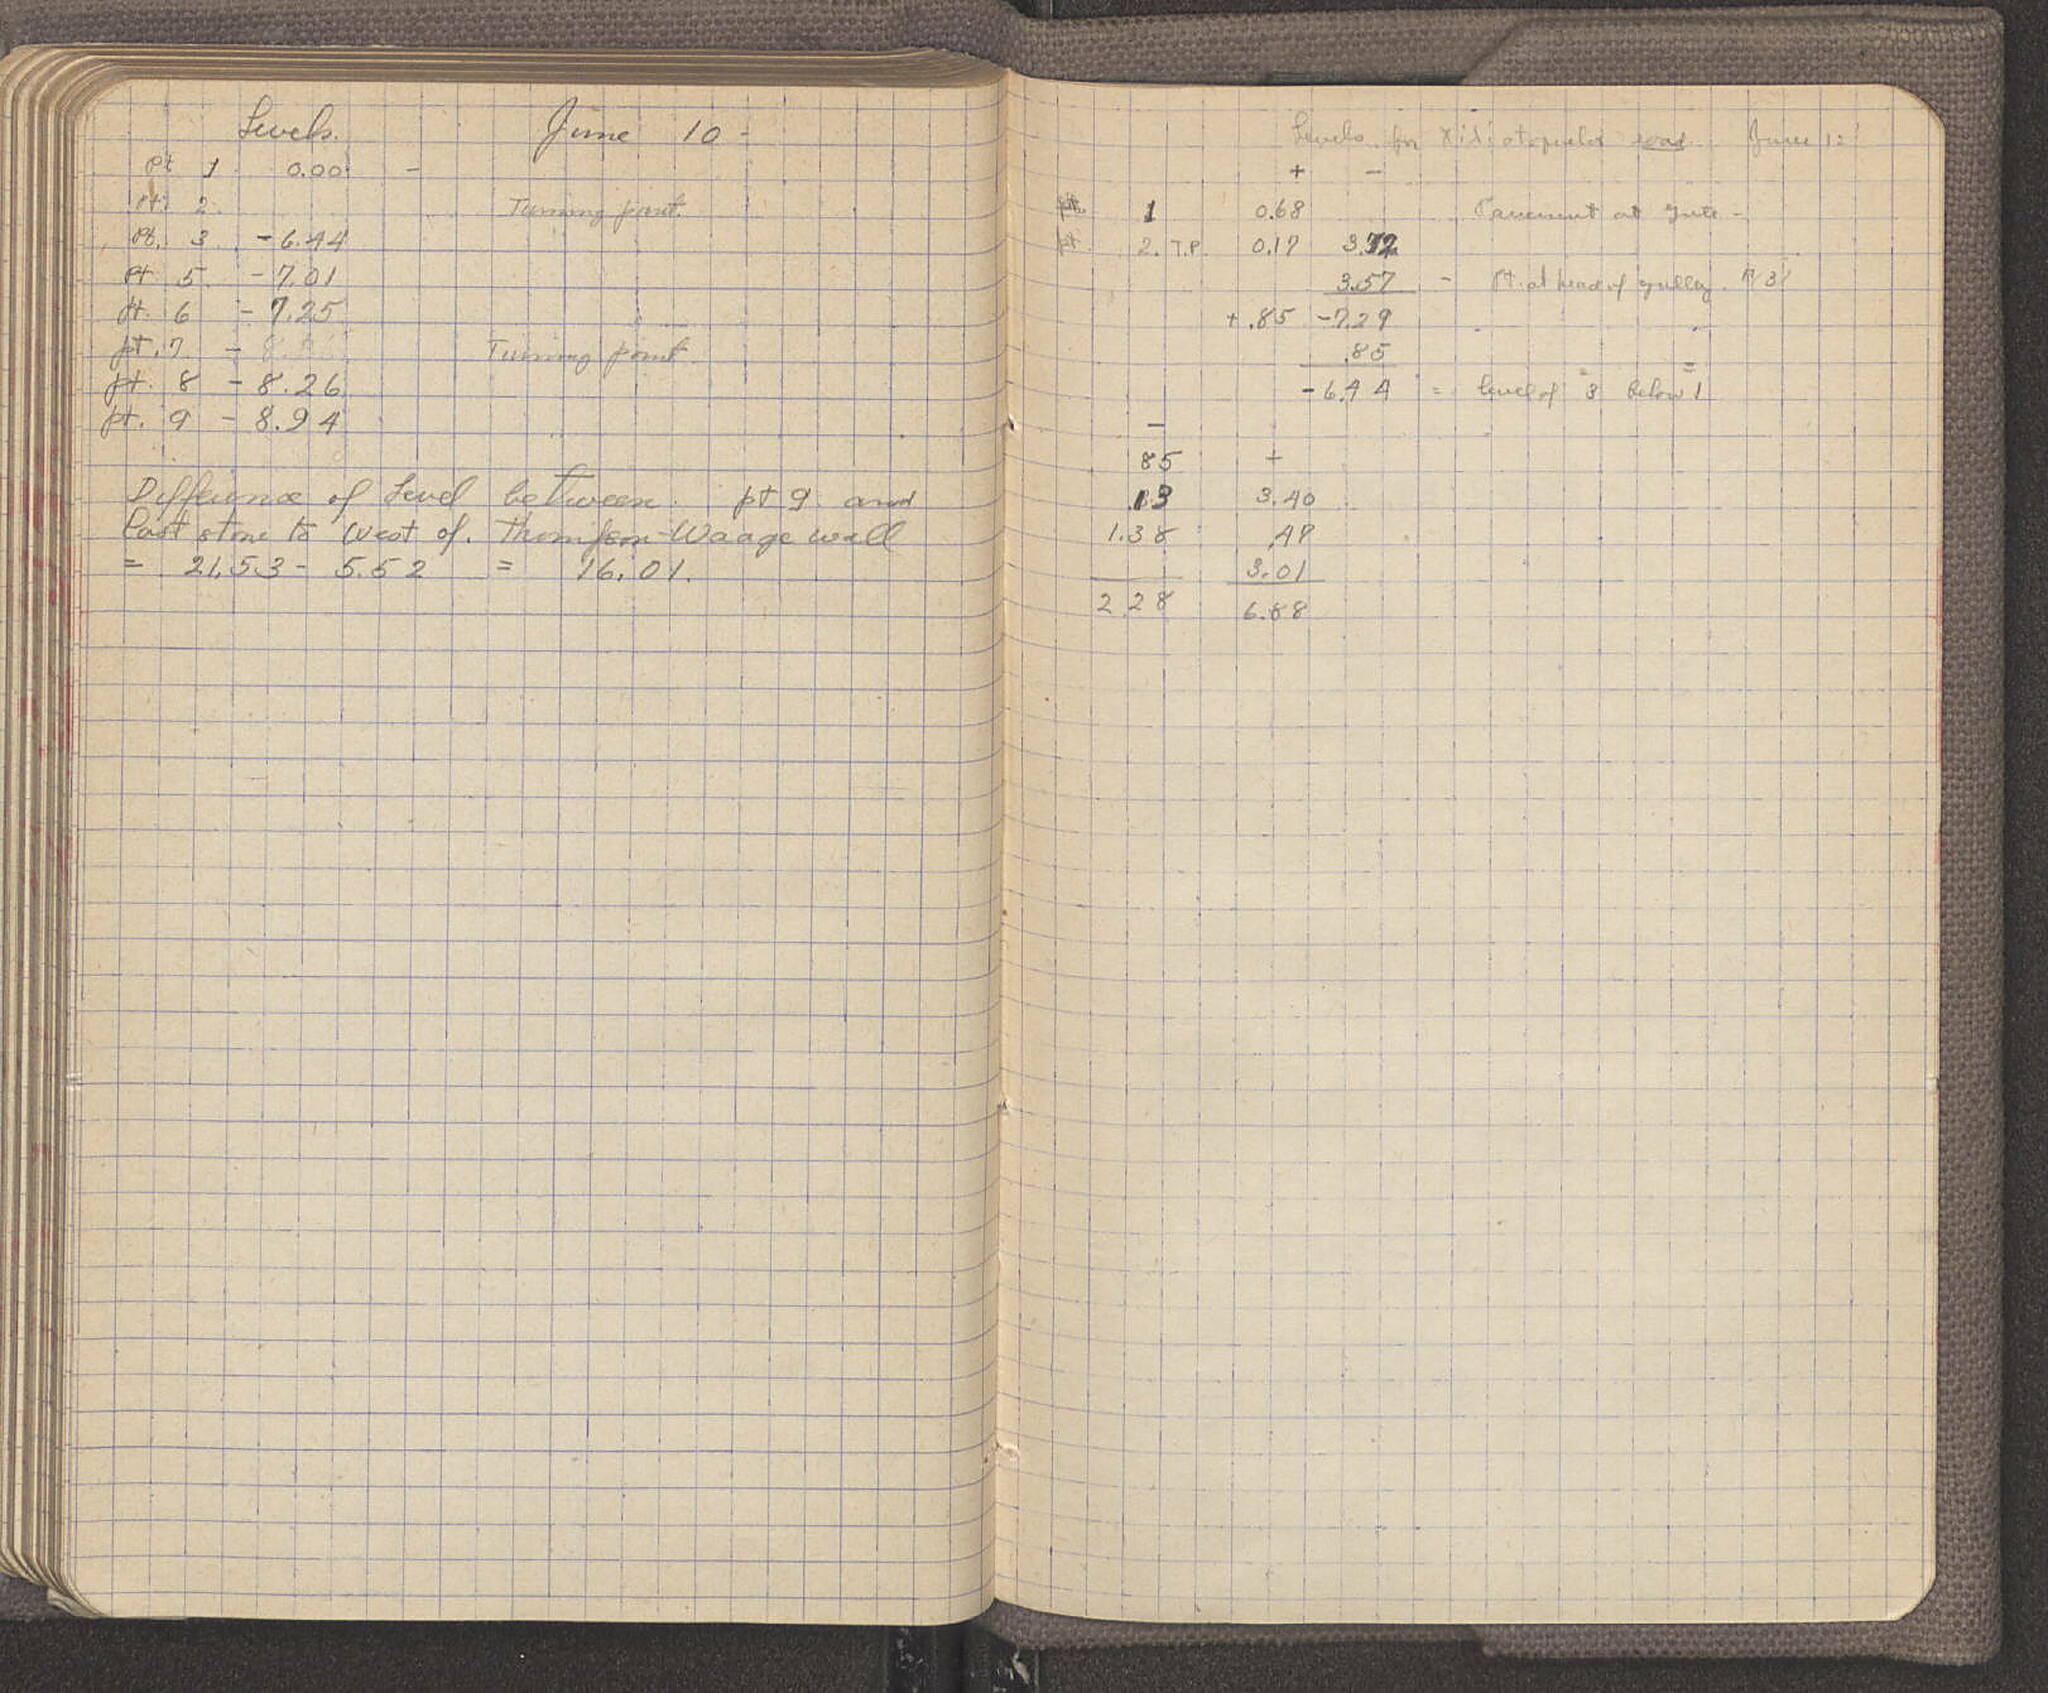 Levels. June 10 -
Pt 1 0.00 -
Pt. 2. Turning point.
Pt. 3 - 6.44
Pt 5. - 7.01
Pt. 6 - 7.25
pt. 7 - Turning point
pt. 8 - 8.26
pt. 9 - 8.94
Difference of Level between pt 9 and
last stone to West of. Thompson-Waage wall
= 21.53 - 5.52 = 16.01.
Levels for road June 12
+ -
pt. 1 0.68 Pavement at gate -
pt. 2. T.P. 0.17 3.72
3.57 - Pt. at head of gulley. 3
+ .85 - 7.29
.85
- 6.44 = level of 3 below 1
-
85 +
.13 3.40
1.38 .47
3.01
2.28 6.88